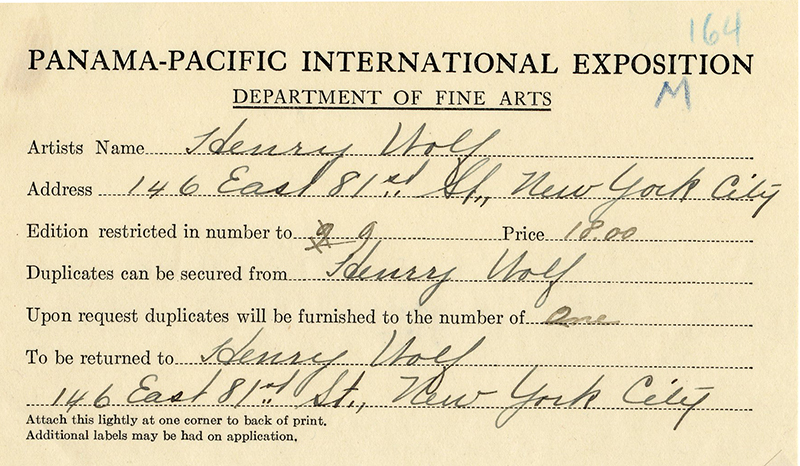 164
PANAMA-PACIFIC INTERNATIONAL EXPOSITION
M
DEPARTMENT OF FINE ARTS
Artists Name Henry Wolf
Address 146 East 81st St., New York City
Edition restricted in number to 9 Price 18.00
Duplicates can be secured from Henry Wolf
Upon request duplicates will be furnished to the number of One
To be returned to Henry Wolf
146 East 81st St., New York City
Attach this lightly at one corner to back of print.
Additional labels may be had on application.